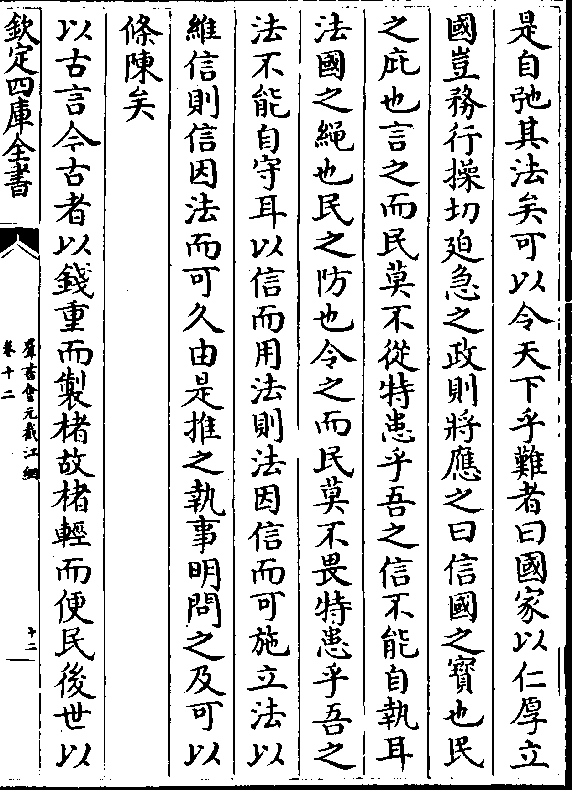 是自弛其法矣可以令天下乎難者曰國家以仁厚立
國豈務行操切迫急之政則將應之曰信國之寳也民
之庇也言之而民莫不從特患乎吾之信不能自執耳
法國之繩也民之防也令之而民莫不畏特患乎吾之
法不能自守耳以信而用法則法因信而可施立法以
維信則信因法而可久由是推之執事明問之及可以
條陳矣
以古言今古者以錢重而製楮故楮輕而便民後世以
欽定四庫全書
羣書會元截江網
卷十二
十二